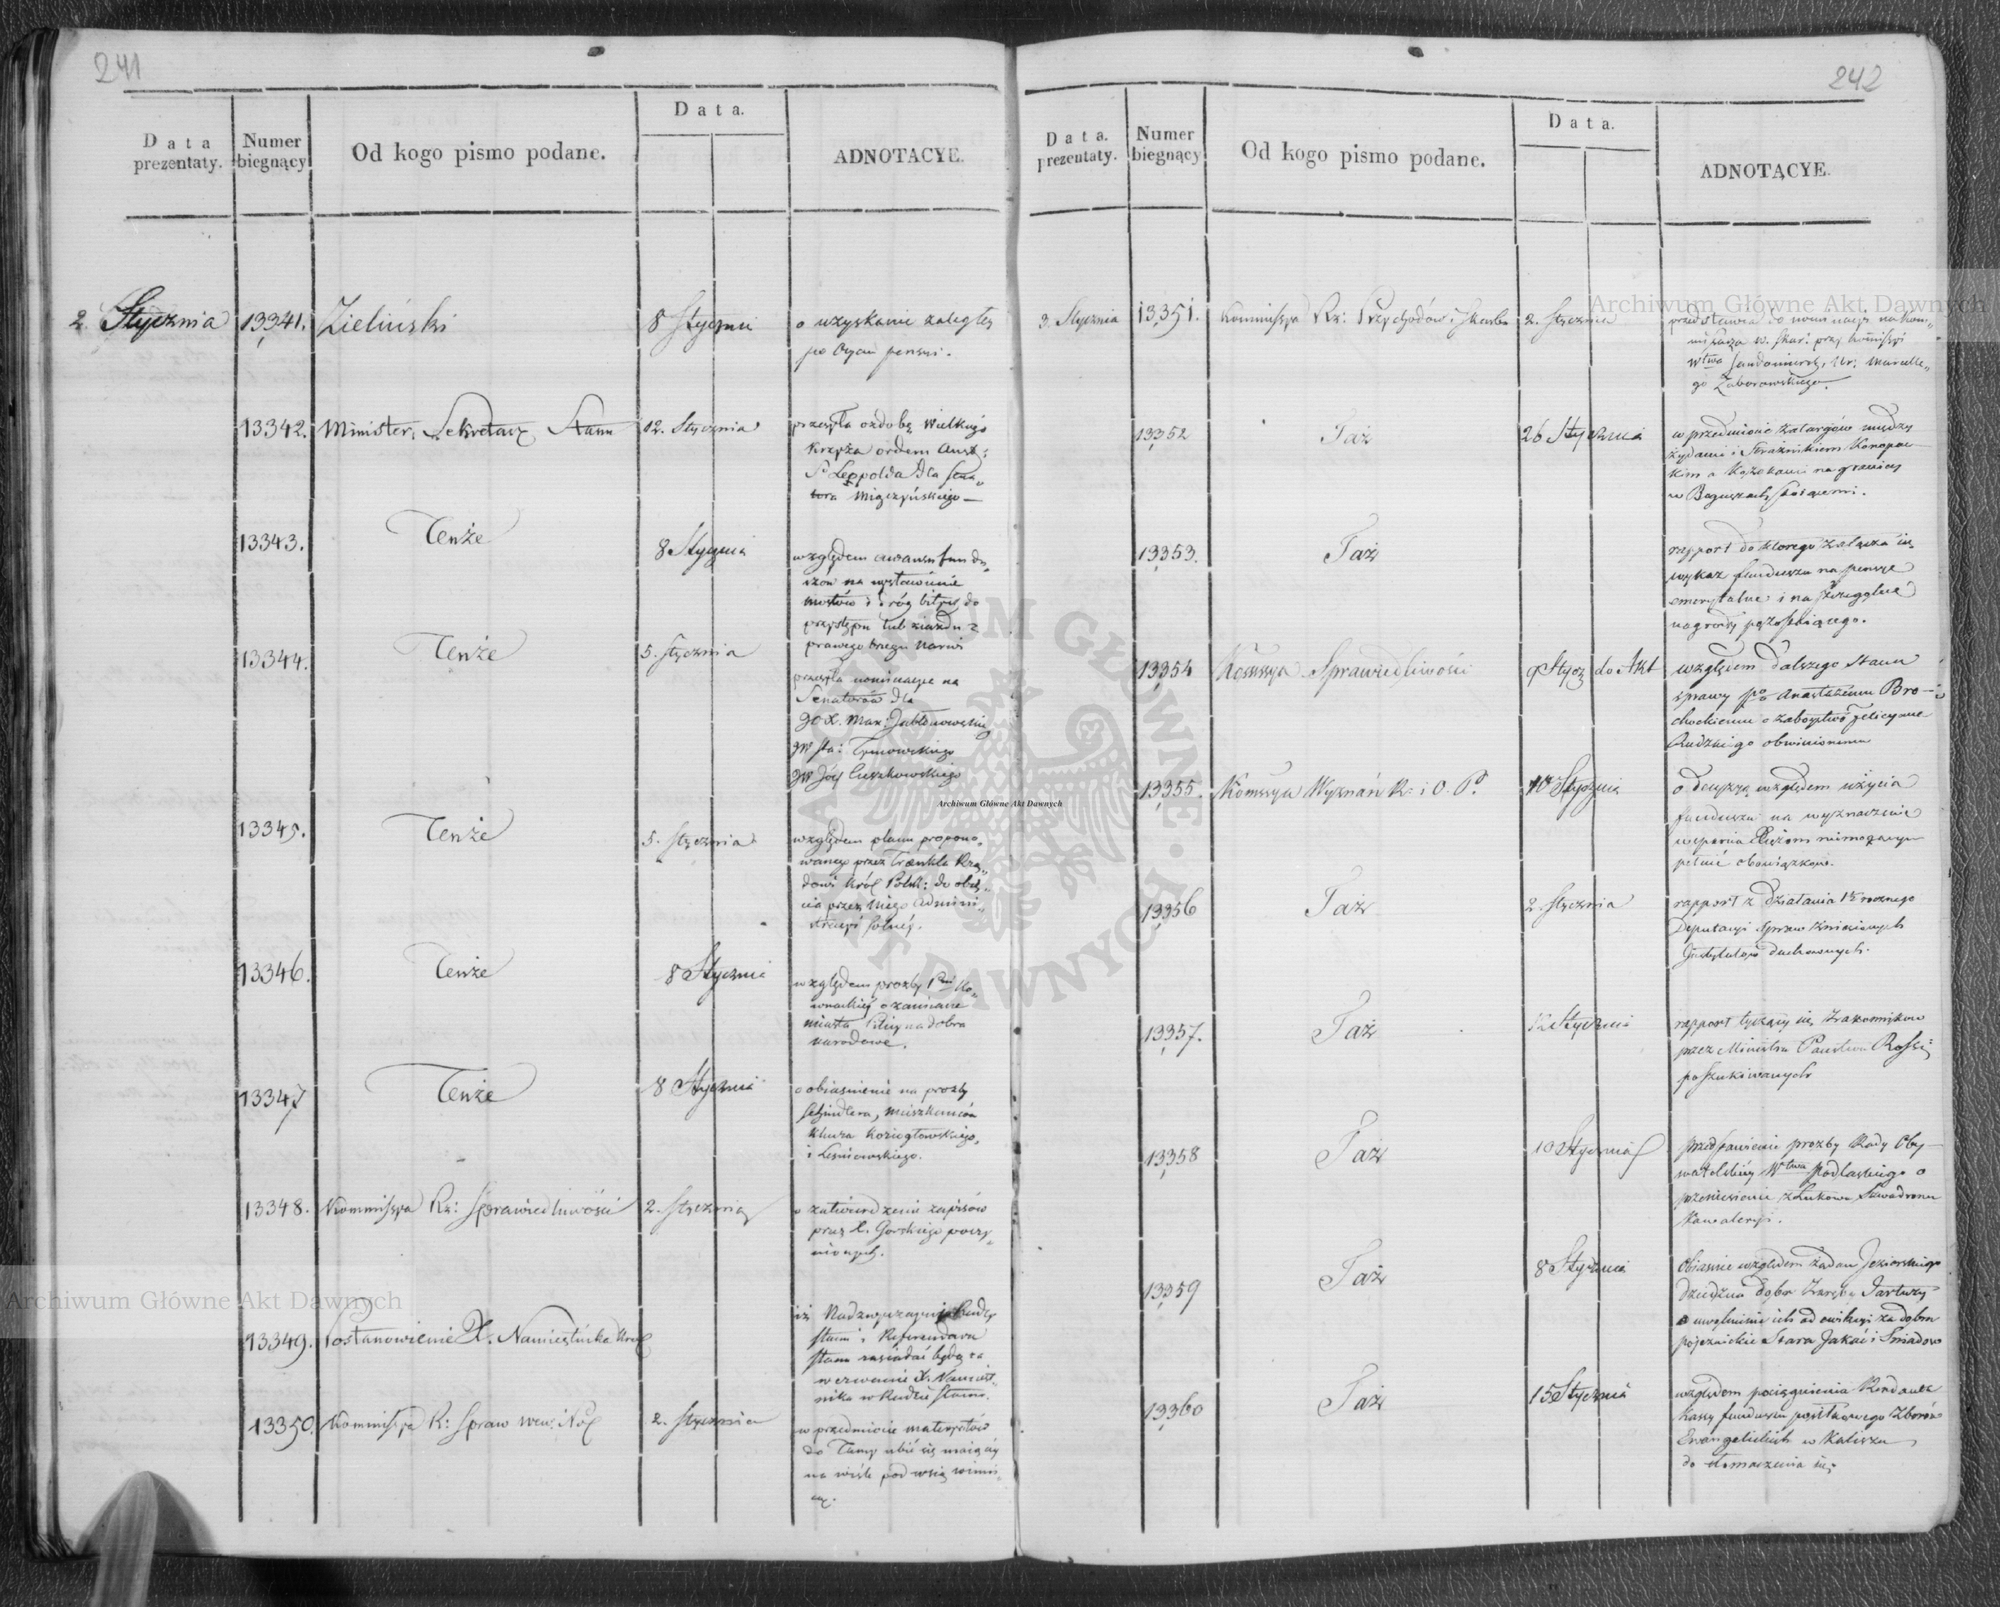 241
Data prezentaty.
Numer biegnący
Od kogo pismo podane.
Data.
ADNOTACYE.
2. Stycznia 13341. Zieliński 8 Stycznia o uzyskanie zaległey
po Oycu pensyi.
13342. Minister Sekretarz Stanu 12. Stycznia przesyła ozdobę Wielkiego
Krzyża orderu Aust:
S. Leopolda dla Sena,,
tora Miączyńskiego —
13343. Tenże 8 Stycznia względem awansu fundu,,
szów na wystawienie
mostów i dróg bitych do
przystępu lub ziazdu z
prawego brzegu Narwi
13344. Tenże 5. Stycznia przesyła nominacye na
Senatorów dla
JO X. Max: Jabłonowskiego
JW Sta: Tymowskiego
JW Józ Cieszkowskiego
13345. Tenże 5. Stycznia względem planu propono,,
wanego przez Fraenkla Rzą,,
dowi Król Polsk: do obię,,
cia przez niego admini,,
stracyi solnéy.
13346. Tenże 8 Stycznia względem prozby
o zamianę
miasta Pilicy na dobra
narodowe.
13347 Tenże 8 Stycznia o obiasnienie na prozby
Schindlera, mieszkańców
klucza Koziegłowskiego,
i Lesniewskiego.
13348. Kommissya Rz: Sprawiedliwości 2. Stycznia o zatwierdzenie zapisów
przez X. Gorskiego poczy,,
nionych.
13349. Postanowienie X. Namiestnika Krol iż Nadzwyczayni Radcy
Stanu i Referendarze
Stanu zasiadać będą za
wezwaniem X. Namiest,,
nika w Radzie Stanu.
13350. Kommissya R: Spraw Wew: i Pol 2. Stycznia w przedmiocie materyałów
do Tamy ubić się maiącéy
na Wiśle pod wsią
242
Data. prezentaty.
Numer biegnący
Od kogo pismo podane.
Data.
ADNOTACYE.
3. Stycznia 13,351. Kommissya Rz: Przychodów i Skarbu 2. Stycznia przedstawia do nominacyi na Kom,,
missarza w. Skar: przy Kommissyi
Wtwa Sandomiersk, Ur: Marcelle,,
go Zaborowskiego.
13352 Taż 26 Stycznia w przedmiocie zatargów między
żydami i Strażnikiem Konopac
kim a Kozakami na granicy
w Boguszach stoiącemi.
13353. Taż rapport do którego załącza się
wykaz funduszu na pensye
emerytalne i na szczególne
nagrody
13354 Kommssya Sprawiedliwości 9 Stycz do Akt względem dalszego stanu
sprawy pko Anastazemu Bro-
chockiemu o zaboystwo Felicyana
Rudzkiego obwinionemu
13355. Kommssya Wyznań R: i O. P. 10 Stycznia o decyzyą względem użycia
funduszu na wyznaczenie
wsparcia Xiężom niemogącym
pełnić obowiązków.
13356 Taż 2. Stycznia rapport z działania 1½ rocznego
Deputacyi Spraw zniesionych
Instytutow duchownych.
13357. Taż 12 Stycznia rapport tyczący się Zakonników
przez Ministra Państwa Rossij
poszukiwanych
13358 Taż 10 Stycznia przedstawienie prozby Rady Oby,,
watelskiey Wtwa Podlaskiego o
przeniesienie z Łukowa Szwadronu
Kawaleryi.
13359 Taż 8 Stycznia Obiaśnie względem żądan Jeziorskiego
Dziedzica dóbr Zaręby
o uwolnienie ich od ewikcyi za dobra
poiezuickie Stara Jakać i Sniadowo
13360 Taż 15 Stycznia względem pociągnienia Rendanta
Kassy funduszu Zborów
Ewangelickich w Kaliszu
do tłomaczenia się
Archiwum Główne Akt Dawnych
Archiwum Główne Akt Dawnych
Archiwum Główne Akt Dawnych
ARCHIWUM GŁÓWNE AKT DAWNYCH